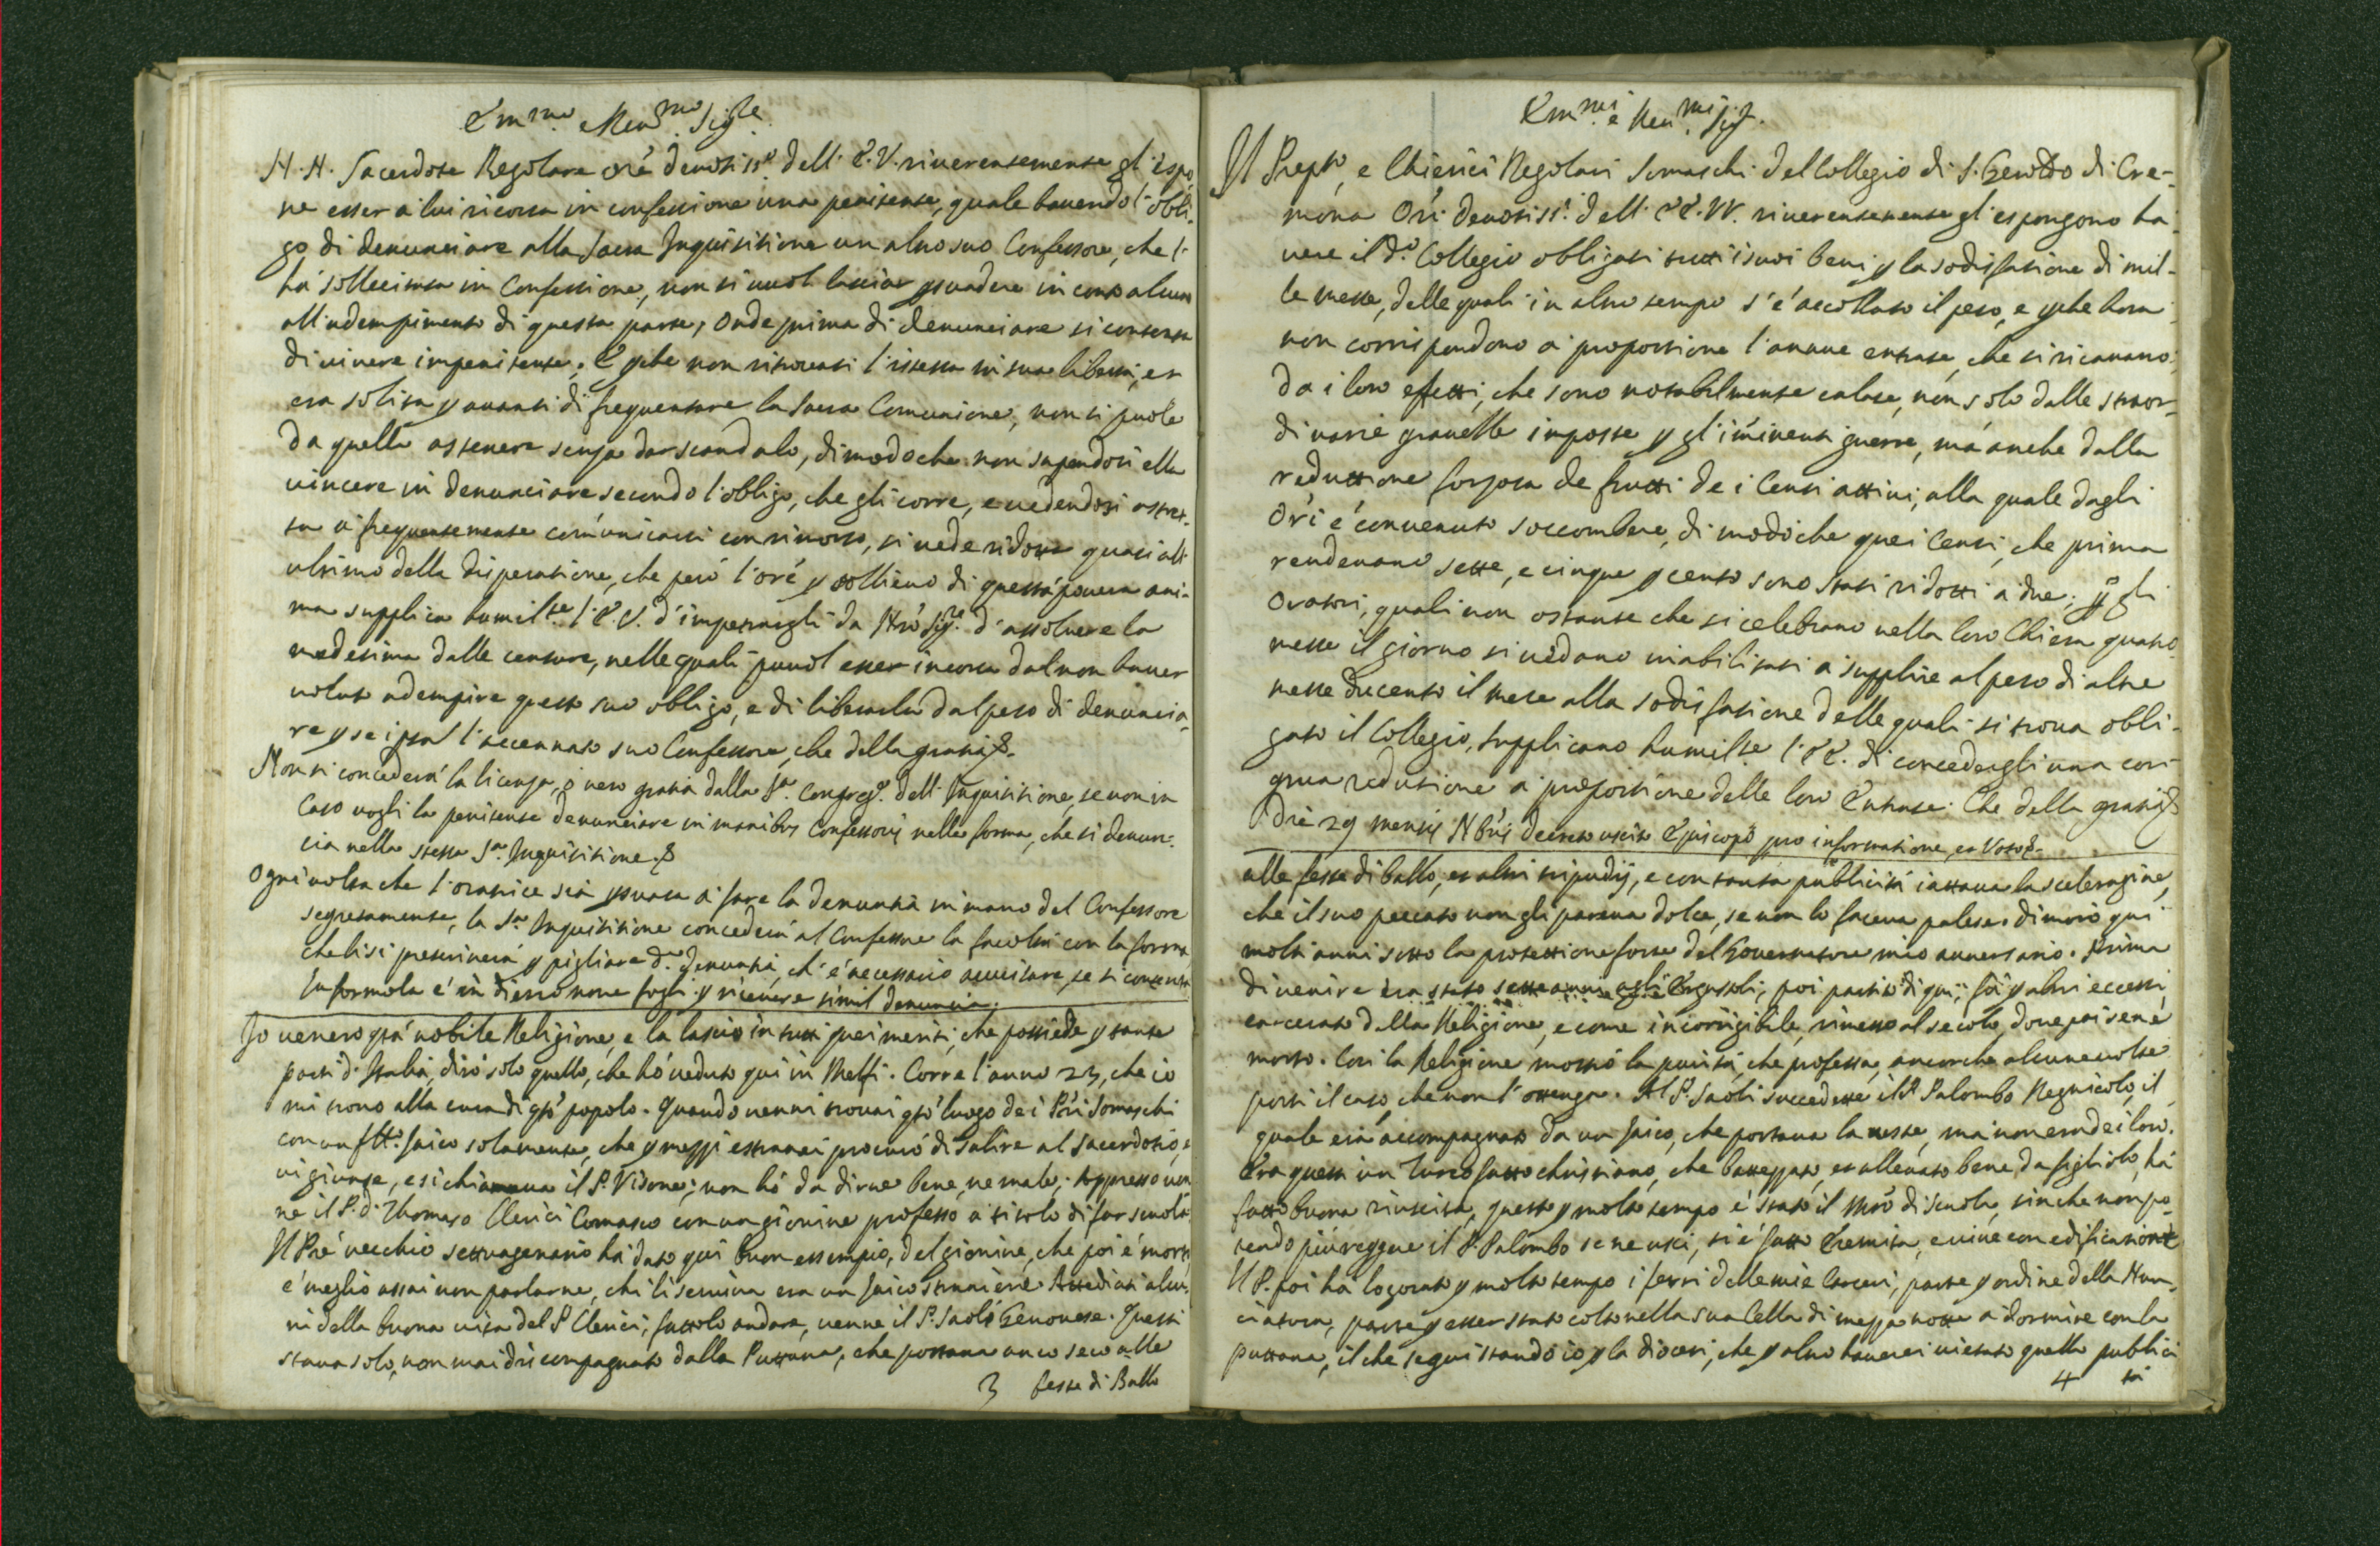 Em.mo e Reu.mo Sig.re
N. N. Sacerdote Regolare Oré deuotiss.o dell' E. V. riuerentemente gl' espo-
ne esser à lui ricorsa in confessione una penitente, quale hauendo l' obli-
go di denunciare alla Sacra Inquisitione un altro suo Confessore, che l'
há sollecitata in Confessione, non si vuol lasciar psuadere in conto alcuno
all' adempimento di questa parte, onde prima di denunciare si contenta
di viuere impenitente. E pche non ritrouasi l' istessa in sua libertà, et
era solita p auanti di frequentare la Sacra Comunione, non si puole
da quella astenere senza dar scandalo, dimodoche non sapendosi ella
uincere in denunciare secondo l' obligo, che gli corre, e uedendosi astret-
ta á frequentemente comunicarsi con rimorso, si uede ridotta quasi all'
ultimo della disperatione, che peró l' oré p sollieuo di questa pouera ani-
ma supplica humil.te l' E. V. d' impetrargli da Nró Sig.re d' assoluere la
medesima dalle censure, nelle quali puuol esser incorsa dal non hauer
uoluto adempire questo suo obligo, e di liberarla dal peso di denuncia-
re p se ipsa l' accennato suo Confessore, che della gratia &.
Non si concederá la licenza, ó uero gratia dalla S.a Congreg.e dell' Inquisitione, se non in
caso uogli la penitente denunciare in manibus Confessoris nella forma, che si denun-
cia nella stessa S.a Inquisitione. &
Ogni uolta che l' oratrice sia psuasa á fare la denuntia in mano del Confessore
segretamente, la S.a Inquisitione concederá al Confessore la facoltá con la forma
che li si prescriuerá p pigliare d.a denuntia, ch' é necessario auuisare, se si contenta
la formola é in dieronone fogli p riceuere simil denuncia.
Io uenero qtá nobile Religione, e la lascio in tutti quei meriti, che possiede p tante
parti d' Italia, diró solo quello, che hó ueduto qui in Melfi. Corre l' anno 23, che io
mi trouo alla cura di qto popolo. Quando uenni trouai qto luogo de i Pri Somaschi
con un flló laico solamente, che p mezzi estranei procuró di salire al sacerdotio, e
ui giunse, e si chiamaua il P. Visone; non hó da dirne bene, ne male. Appresso uen-
ne il P. D. Thomaso Clerici Comasco con un giouine professo a titolo di far scuola.
Il Pre uecchio settuagenario há dato qui buon essempio, del giouine, che poi é morto,
é meglio assai non parlarne, chi li seruiua era un laico straniero. Attediati alcu-
ni della buona uita del P. Clerici, fattolo andare, uenne il P. Saoli Genouese. Questi
staua solo, non mai discompagnato dalla Puttana, che portaua anco seco alle
3 feste di Ballo
Em.mi e Reu.mi Sig.ri
Il Prep.to, e Chierici Regolari Somaschi del Collegio di S. Geroldo di Cre-
mona Ori deuotiss.i dell' EE. VV. riuerentemente gl' espongono ha-
uere il d.o Collegio obligati tutti i suoi beni p la sodisfatione di mil-
le messe, delle quali in altro tempo s' é accollato il peso, e pche hora
non corrispondono a proportione l' annue entrate, che si ricauano
da i loro effetti, che sono notabilmente calate, non solo dalle straor-
dinarie grauezze imposte p gl' iminenti guerre, má anche dalla
reduttione forzosa de frutti de i Censi attiui, alla quale dagli
Ori é conuenuto soccombere, di modo che quei Censi, che prima
rendeuano sette, e cinque p cento sono stati ridotti a due; pp gli
Oratori, quali non ostante che si celebrano nella loro Chiesa quatro
messe il giorno si uedano inabilitati á supplire al peso di altre
messe ducento il mese alla sodisfatione delle quali si troua obli-
gato il Collegio, supplicano humil.te l' EE. di concedergli una con-
grua redutione á proportione delle loro Entrate. Che della gratia &
Die 29 mensis Nbris decreto uscito Episcopo pro informatione, et Voto &.
alle feste di ballo, et altri tripudij, e con tanta publicitá iattaua la sceleragine,
che il suo peccato non gli pareua dolce, se non lo faceua palese. dimoró qui
molti anni sotto la protettione forse del Gouernatore mio auuersario. Prima
di uenire era stato sette anni agli Ergastoli; poi partito di qui; fú p altri eccessi
carcerato dalla Religione, e come incorrigibile, rimesso al secolo, doue poi se né
morto. Cosi la Religione mostró la puritá, che professa, ancorche alcune uolte
porti il caso che non l' ottenga. Al P. Saoli succedette il P. Palombo Regnicolo, il
quale era accompagnato da un laico, che portaua la ueste, ma non era de i loro.
Era questi un Turco fatto christiano, che battezzato, et alleuato bene da figliolo, há
fatto buona riuscita, questo p molto tempo é stato il Mró di scuola, sin che non po-
tendo piú reggere il P. Palombo se ne uscí, si é fatto Eremita, e uiue con edificatione
Il P. poi há logorato p molto tempo i ferri delle mie Carceri, parte p ordine della Nun-
ciatura, parte p esser stato colto nella sua Cella di mezza notte a dormire con la
puttana, il che seguí stando io p la diocesi, che p altro hauerei uietato quella publici
4 tá